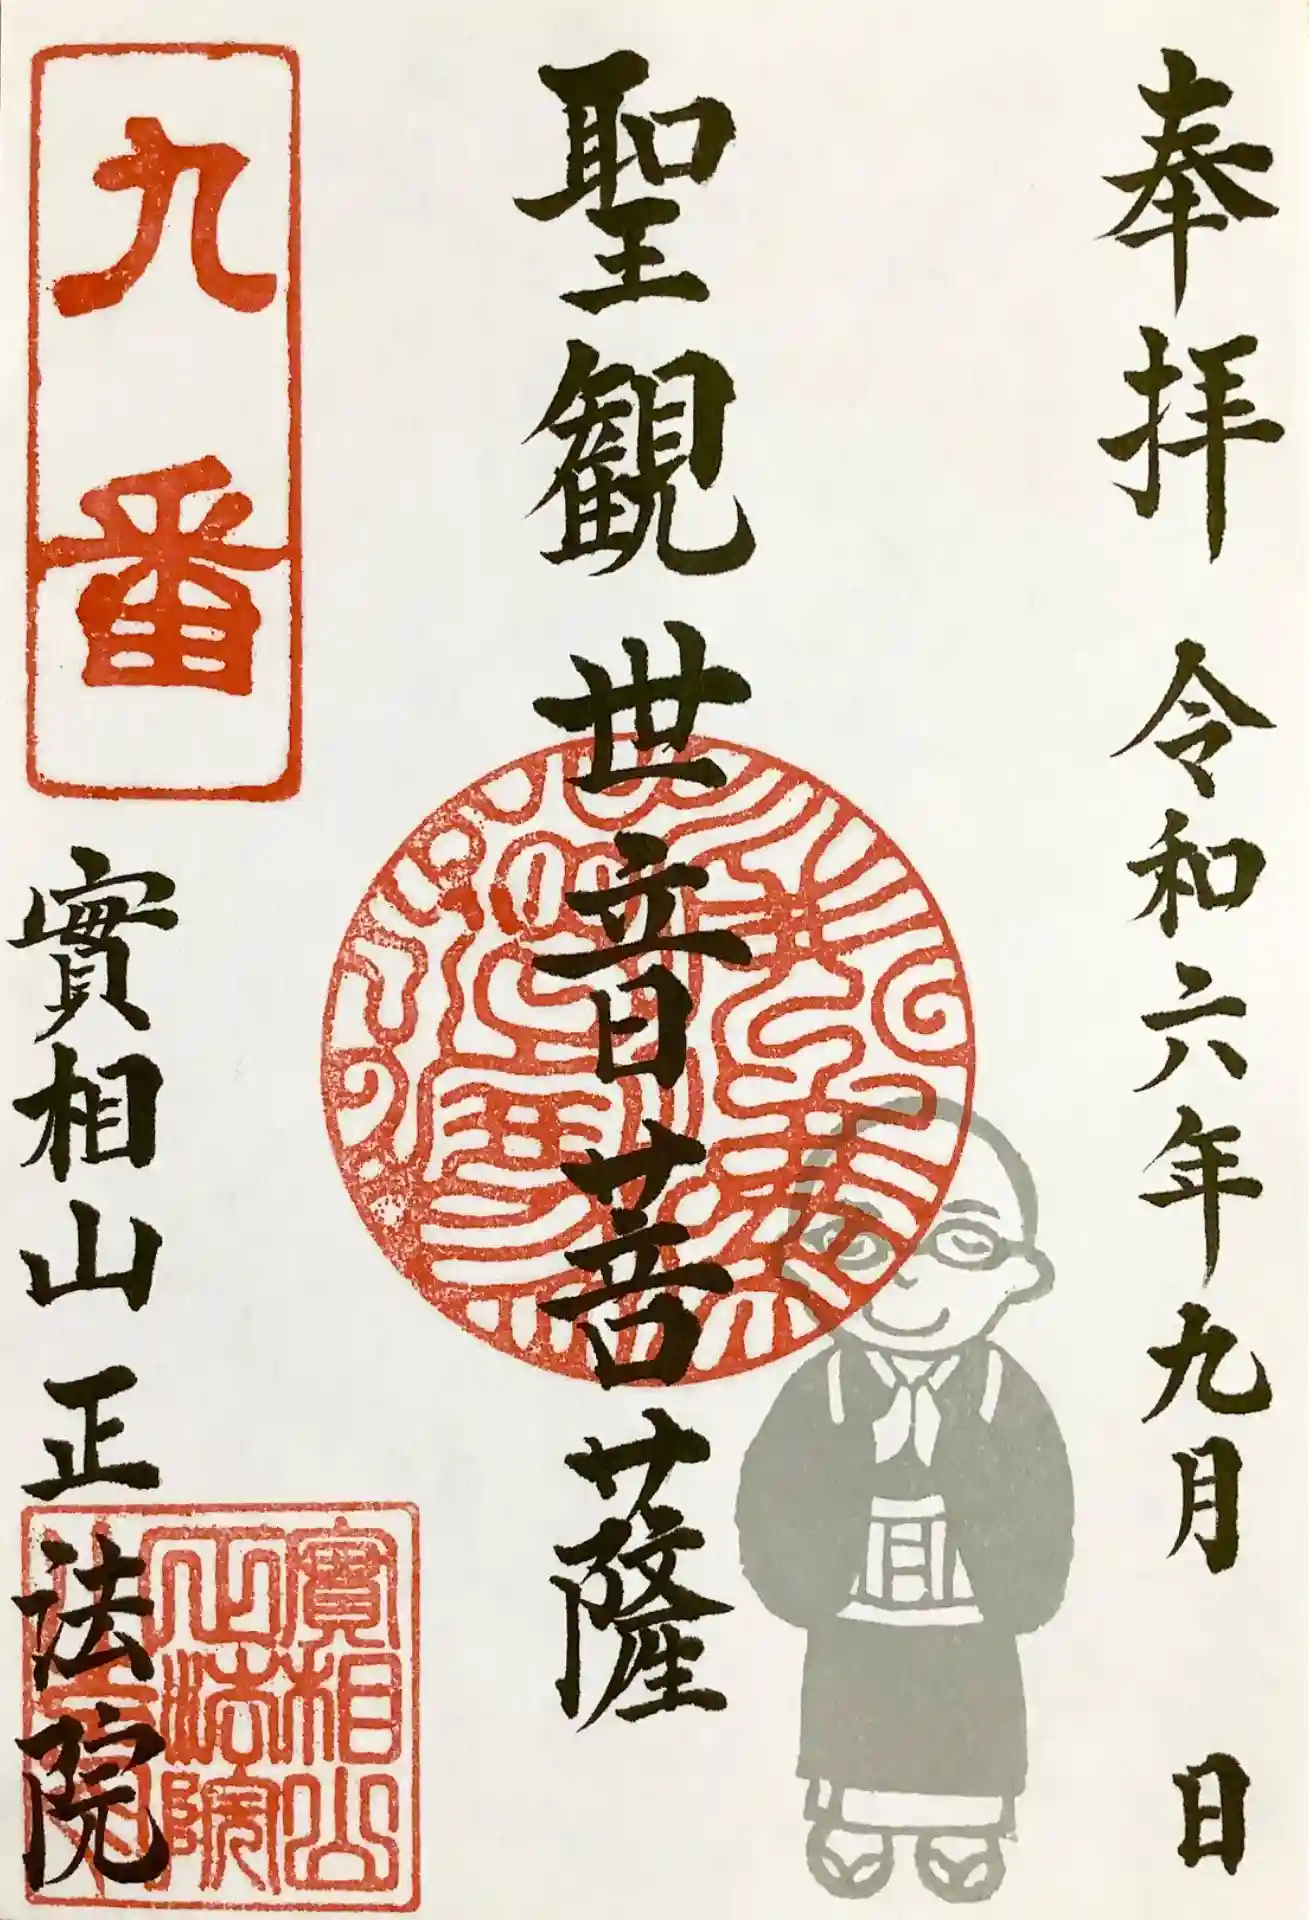 奉拝 令和六年九月 日
聖観世音菩薩
九番
實相山 正法院
實相山
正法院